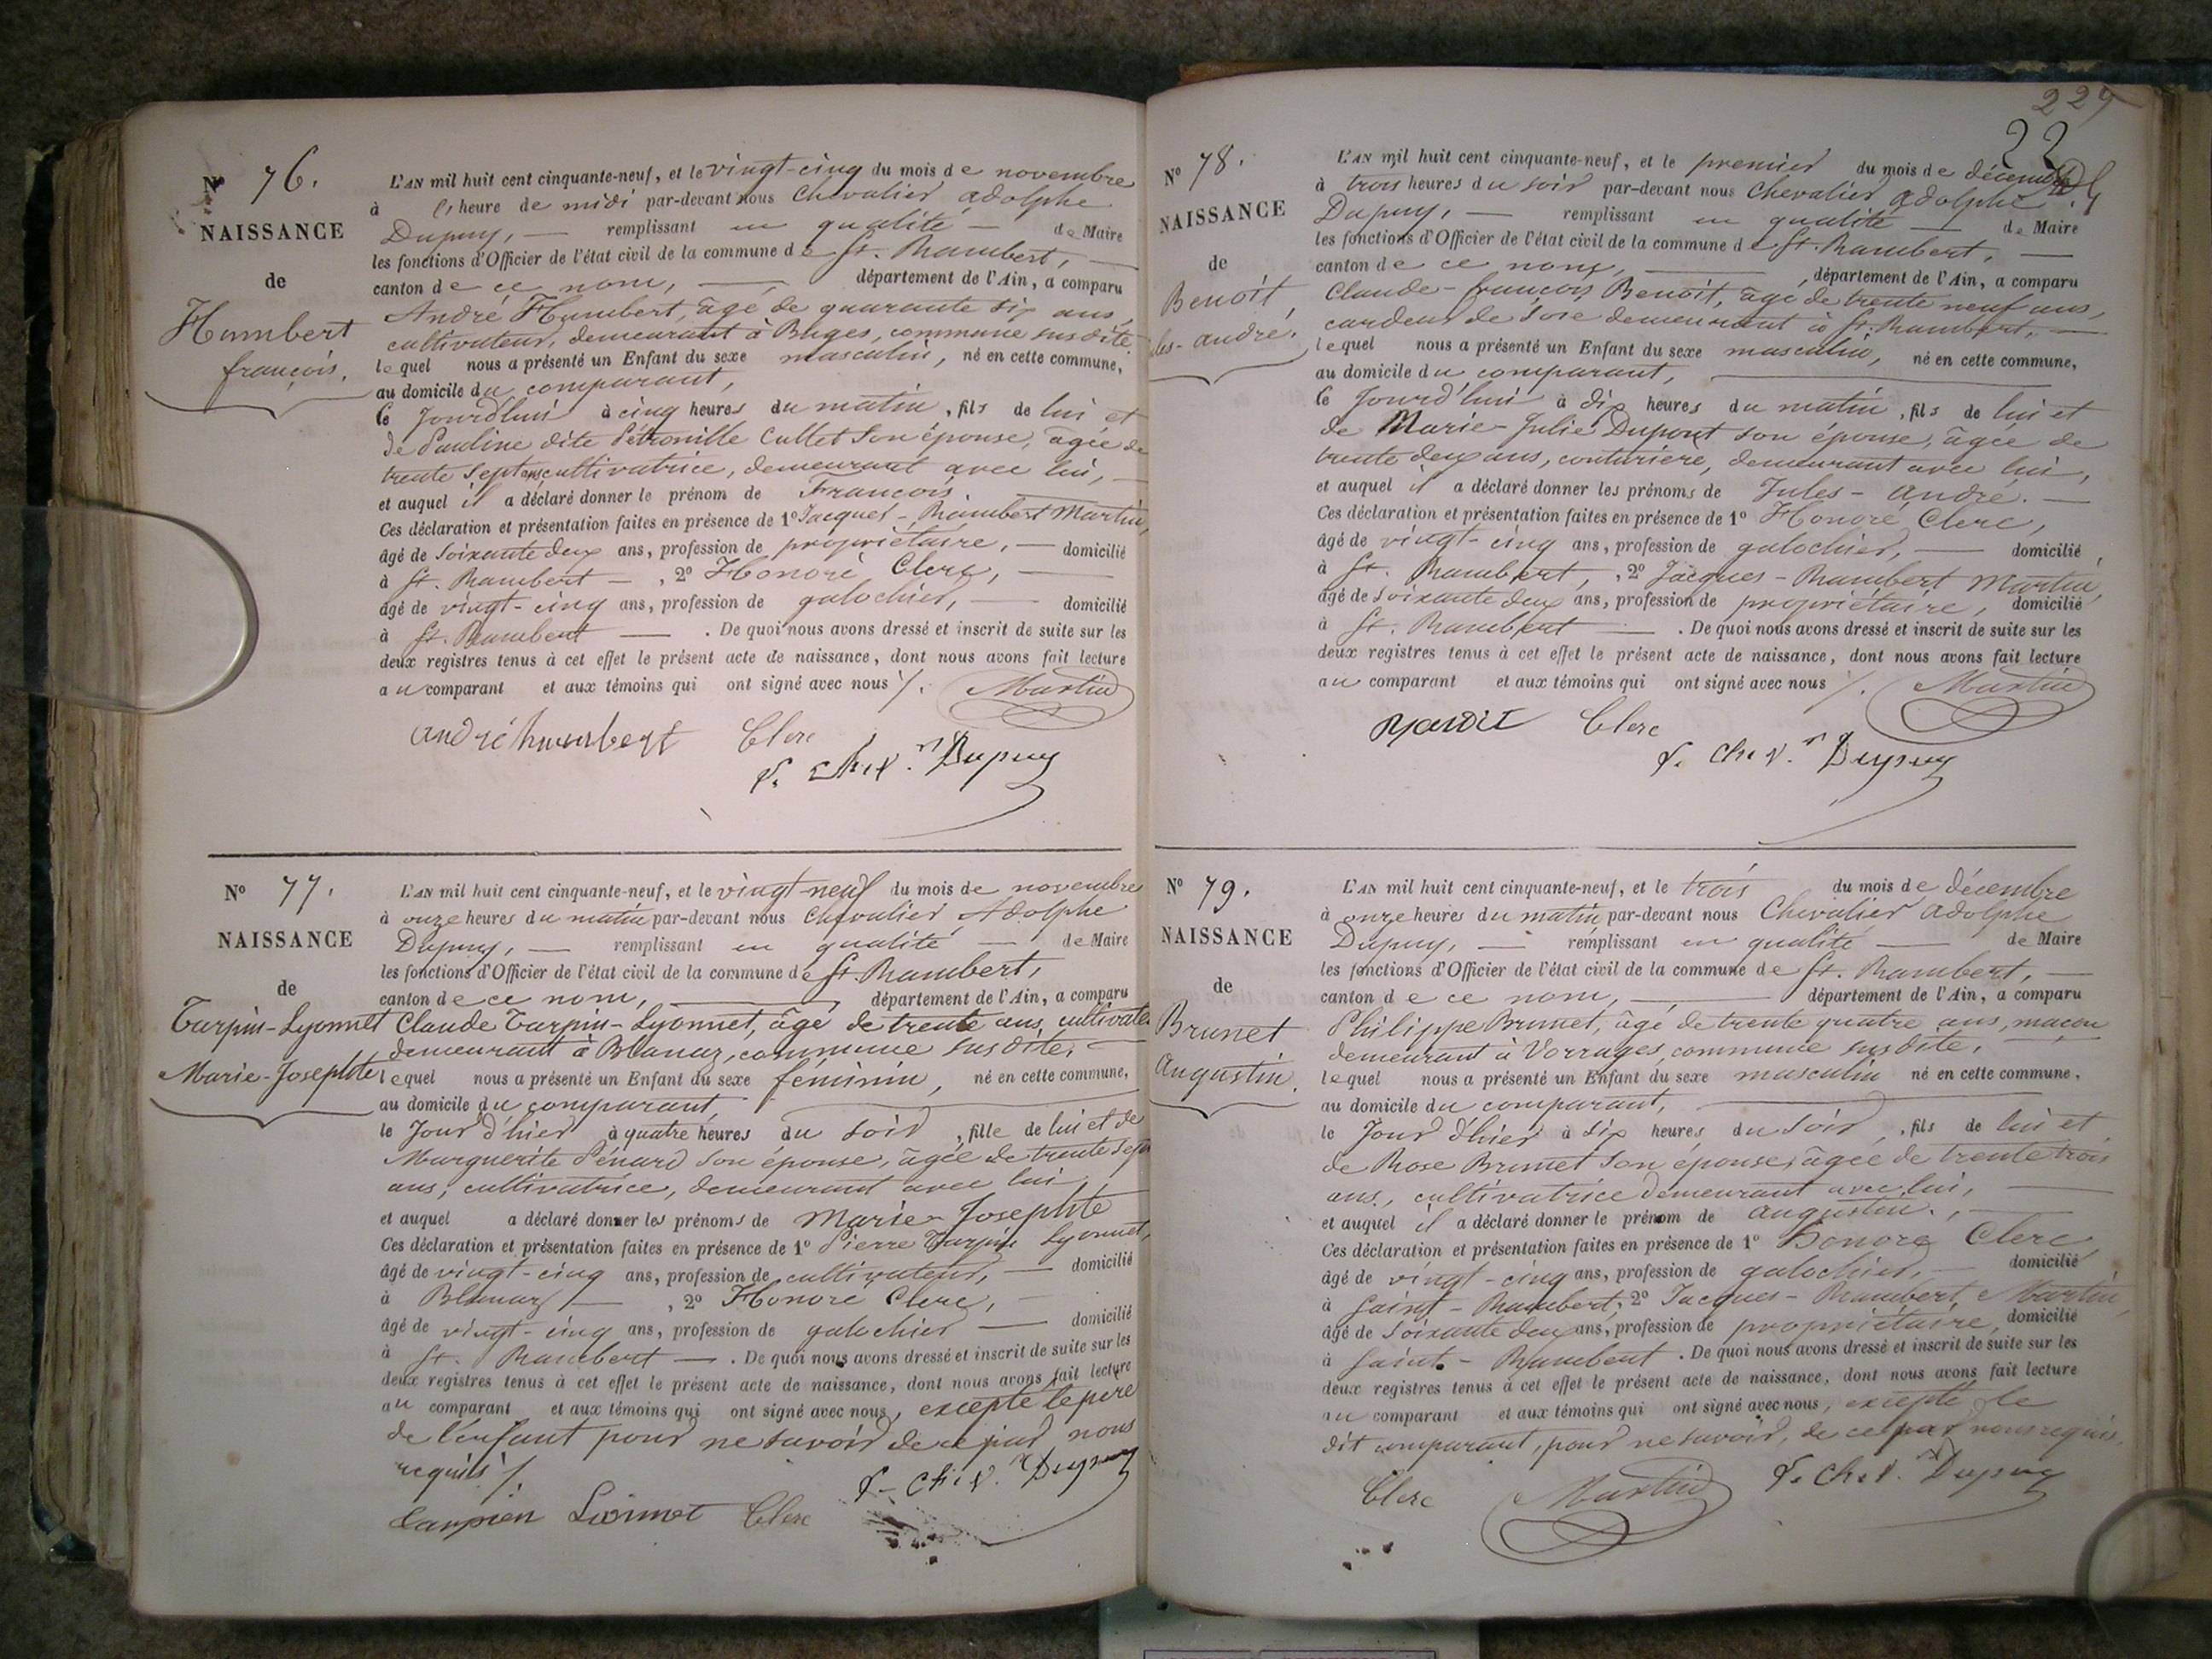 No 76.
NAISSANCE
de
Humbert
françois.
L'AN mil huit cent cinquante-neuf, et le vingt-cinq du mois de novembre
à l'heure de midi par-devant nous Chevalier Adolphe
Dupuy, — remplissant en qualité — de Maire
les fonctions d'Officier de l'état civil de la commune de St. Rambert, —
canton de ce nom, — département de l'Ain, a comparu
André Humbert, âgé de quarante six ans,
cultivateur, demeurant à Buges, commune susdite
lequel nous a présenté un Enfant du sexe masculin, né en cette commune,
au domicile du comparant,
le Jourd'hui à cinq heures du matin, fils de lui et
de Pauline dite Pétronille Cullet son épouse, âgée de
trente sept ans cultivatrice, demeurant avec lui, —
et auquel il a déclaré donner le prénom de François.
Ces déclaration et présentation faites en présence de 1o Jacques-Rambert Martin,
âgé de soixante deux ans, profession de propriétaire, — domicilié
à St. Rambert — , 2o Honoré Clerc, —
âgé de vingt-cinq ans, profession de galochier, — domicilié
à St. Rambert — . De quoi nous avons dressé et inscrit de suite sur les
deux registres tenus à cet effet le présent acte de naissance, dont nous avons fait lecture
au comparant et aux témoins qui ont signé avec nous ./. Martin
andré humbert Clerc
Chev. Dupuy
No 77.
NAISSANCE
de
Tarpin-Lyonnet
Marie-Josephte
L'AN mil huit cent cinquante-neuf, et le vingt-neuf du mois de novembre
à onze heures du matin par-devant nous Chevalier Adolphe
Dupuy, — remplissant en qualité — de Maire
les fonctions d'Officier de l'état civil de la commune de St. Rambert,
canton de ce nom, — département de l'Ain, a comparu
Claude Tarpin-Lyonnet, âgé de trente ans, cultivate
demeurant à Blanaz, commune susdite, —
lequel nous a présenté un Enfant du sexe féminin, né en cette commune,
au domicile du comparant,
le Jour d'hier à quatre heures du soir, fille de lui et de
Marguerite Pénard son épouse, âgée de trente sept
ans, cultivatrice, demeurant avec lui,
et auquel a déclaré donner les prénoms de Marie-Josephte
Ces déclaration et présentation faites en présence de 1o Pierre Tarpin Lyonnet,
âgé de vingt-cinq ans, profession de cultivateur, — domicilié
à Blanaz — , 2o Honoré Clerc, —
âgé de vingt-cinq ans, profession de galochier — domicilié
à St. Rambert — . De quoi nous avons dressé et inscrit de suite sur les
deux registres tenus à cet effet le présent acte de naissance, dont nous avons fait lecture
au comparant et aux témoins qui ont signé avec nous, excepté le père
de l'enfant pour ne savoir de ce par nous
requis ./.
Chev. Dupuy
Carpien Lionnet Clerc
229
22
No 78.
NAISSANCE
de
Benoît,
les-andré.
L'AN mil huit cent cinquante-neuf, et le premier du mois de décembre
à trois heures du soir par-devant nous Chevalier Adolphe
Dupuy, — remplissant en qualité — de Maire
les fonctions d'Officier de l'état civil de la commune de St. Rambert, —
canton de ce nom, — , département de l'Ain, a comparu
Claude-françois Benoît, âgé de trente neuf ans,
cardeur de soie demeurant à St. Rambert, —
lequel nous a présenté un Enfant du sexe masculin, né en cette commune,
au domicile du comparant, —
le Jourd'hui à dix heures du matin, fils de lui et
de Marie-Julie Dupont son épouse, âgée de
trente deux ans, couturière, demeurant avec lui,
et auquel il a déclaré donner les prénoms de Jules-André. —
Ces déclaration et présentation faites en présence de 1o Honoré Clerc,
âgé de vingt-cinq ans, profession de galochier, — domicilié
à St. Rambert, , 2o Jacques-Rambert Martin,
âgé de soixante deux ans, profession de propriétaire, domicilié
à St. Rambert — . De quoi nous avons dressé et inscrit de suite sur les
deux registres tenus à cet effet le présent acte de naissance, dont nous avons fait lecture
au comparant et aux témoins qui ont signé avec nous ./. Martin
Clerc
Chev. Dupuy
No 79.
NAISSANCE
de
Brunet
Augustin.
L'AN mil huit cent cinquante-neuf, et le trois du mois de décembre
à onze heures du matin par-devant nous Chevalier Adolphe
Dupuy, — remplissant en qualité — de Maire
les fonctions d'Officier de l'état civil de la commune de St. Rambert, —
canton de ce nom, — département de l'Ain, a comparu
Philippe Brunet, âgé de trente quatre ans, maçon
demeurant à Vorrages, commune susdite, —
lequel nous a présenté un Enfant du sexe masculin né en cette commune,
au domicile du comparant, —
le Jour d'hier à six heures du soir, fils de lui et
de Rose Brunet son épouse, âgée de trente trois
ans, cultivatrice demeurant avec lui, —
et auquel il a déclaré donner le prénom de augustin. —
Ces déclaration et présentation faites en présence de 1o Honoré Clerc
âgé de vingt-cinq ans, profession de galochier, — domicilié
à Saint-Rambert, 2o Jacques-Rambert Martin
âgé de soixante deux ans, profession de propriétaire, domicilié
à Saint-Rambert . De quoi nous avons dressé et inscrit de suite sur les
deux registres tenus à cet effet le présent acte de naissance, dont nous avons fait lecture
au comparant et aux témoins qui ont signé avec nous, excepté le
dit comparant, pour ne savoir, de ce par nous requis.
Chev. Dupuy
Clerc Martin